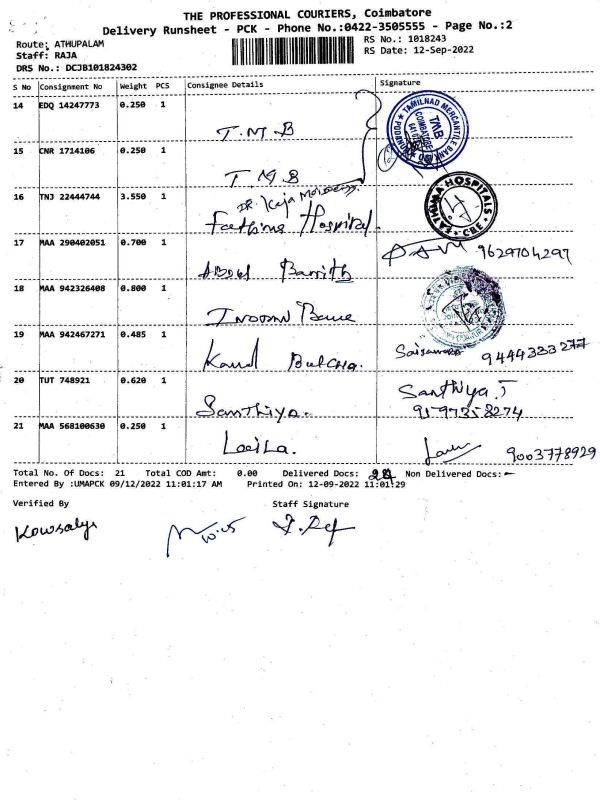 THE PROFESSIONAL COURIERS, Coimbatore
Delivery Runsheet - PCK - Phone No.:0422-3505555 - Page No.:2
Route: ATHUPALAM
RS No.: 1018243
Staff: RAJA
RS Date: 12-Sep-2022
DRS No.: DCJB101824302
S No Consignment No Weight PCS Consignee Details Signature
14 EDQ 14247773 0.250 1 T.M.B
TAMILNAD MERCANTILE BANK TMB COIMBATORE
15 CNR 1714106 0.250 1 T.M.B
16 TNJ 22444744 3.550 1 DR. Kaja Fathima Hospital. FATHIMA HOSPITALS CBE
17 MAA 290402051 0.700 1 Abdul 9629704297
18 MAA 942326408 0.800 1
19 MAA 942467271 0.485 1 9444333277
20 TUT 748921 0.620 1 Santhiya. Santhiya.J
9159735 8274
21 MAA 568100630 0.250 1 Laila. 9003778929
Total No. Of Docs: 21 Total COD Amt: 0.00 Delivered Docs: 21 Non Delivered Docs:-
Entered By :UMAPCK 09/12/2022 11:01:17 AM Printed On: 12-09-2022 11:01:29
Verified By Staff Signature
Kowsalya